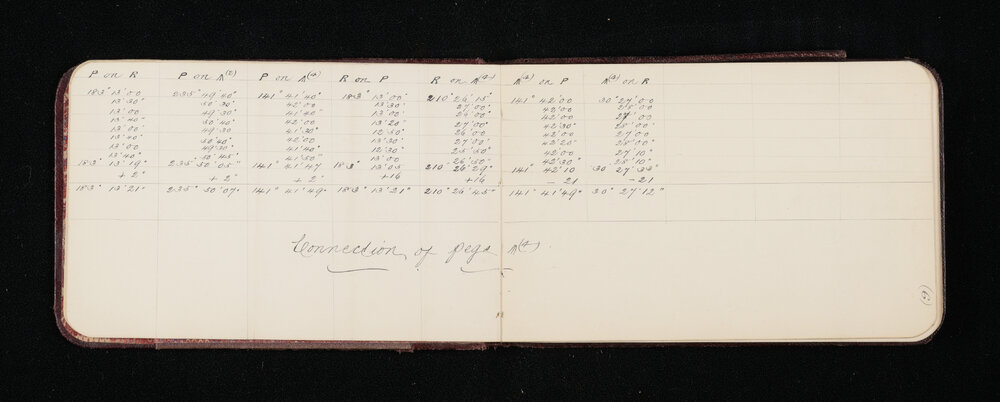 P on R P on A(2) P on A(4) R on P R on A(4) A(4) on P A(4) on R
183° 13' 00 235° 49' 40" 141° 41' 40" 183° 13' 00" 210° 26' 15" 141° 42' 00 30° 27' 00
13' 30" 50' 30" 42' 00 13' 30" 27' 00" 42' 00 28' 00
13' 00 49' 30" 41' 40" 13' 00 42' 00 27' 00
13' 40" 50' 40" 42' 00 13' 20" 27' 00" 42' 30" 28' 00
13' 00 49' 30 41' 30" 12' 50" 26' 00 42' 00 27' 00
13' 40" 50' 40" 42' 00 13' 30" 27' 00" 42' 20" 28' 00
13' 00 41' 40" 12' 30" 25' 50" 42' 00 27' 10"
13' 40" 50' 45" 41' 50" 13' 00 26' 50" 42' 30" 28' 10"
183° 13' 19" 235° 50' 05" 141° 41' 47 183° 13' 05 210° 26' 29" 141° 42' 10 30° 27' 33"
+ 2" + 2" + 2" +16 +16 - 21 - 21
183° 13' 21" 235° 50' 07" 141° 41' 49" 183° 13' 21" 210° 26' 45" 141° 41' 49" 30° 27' 12"
Connection of Pegs A(4).
(6)